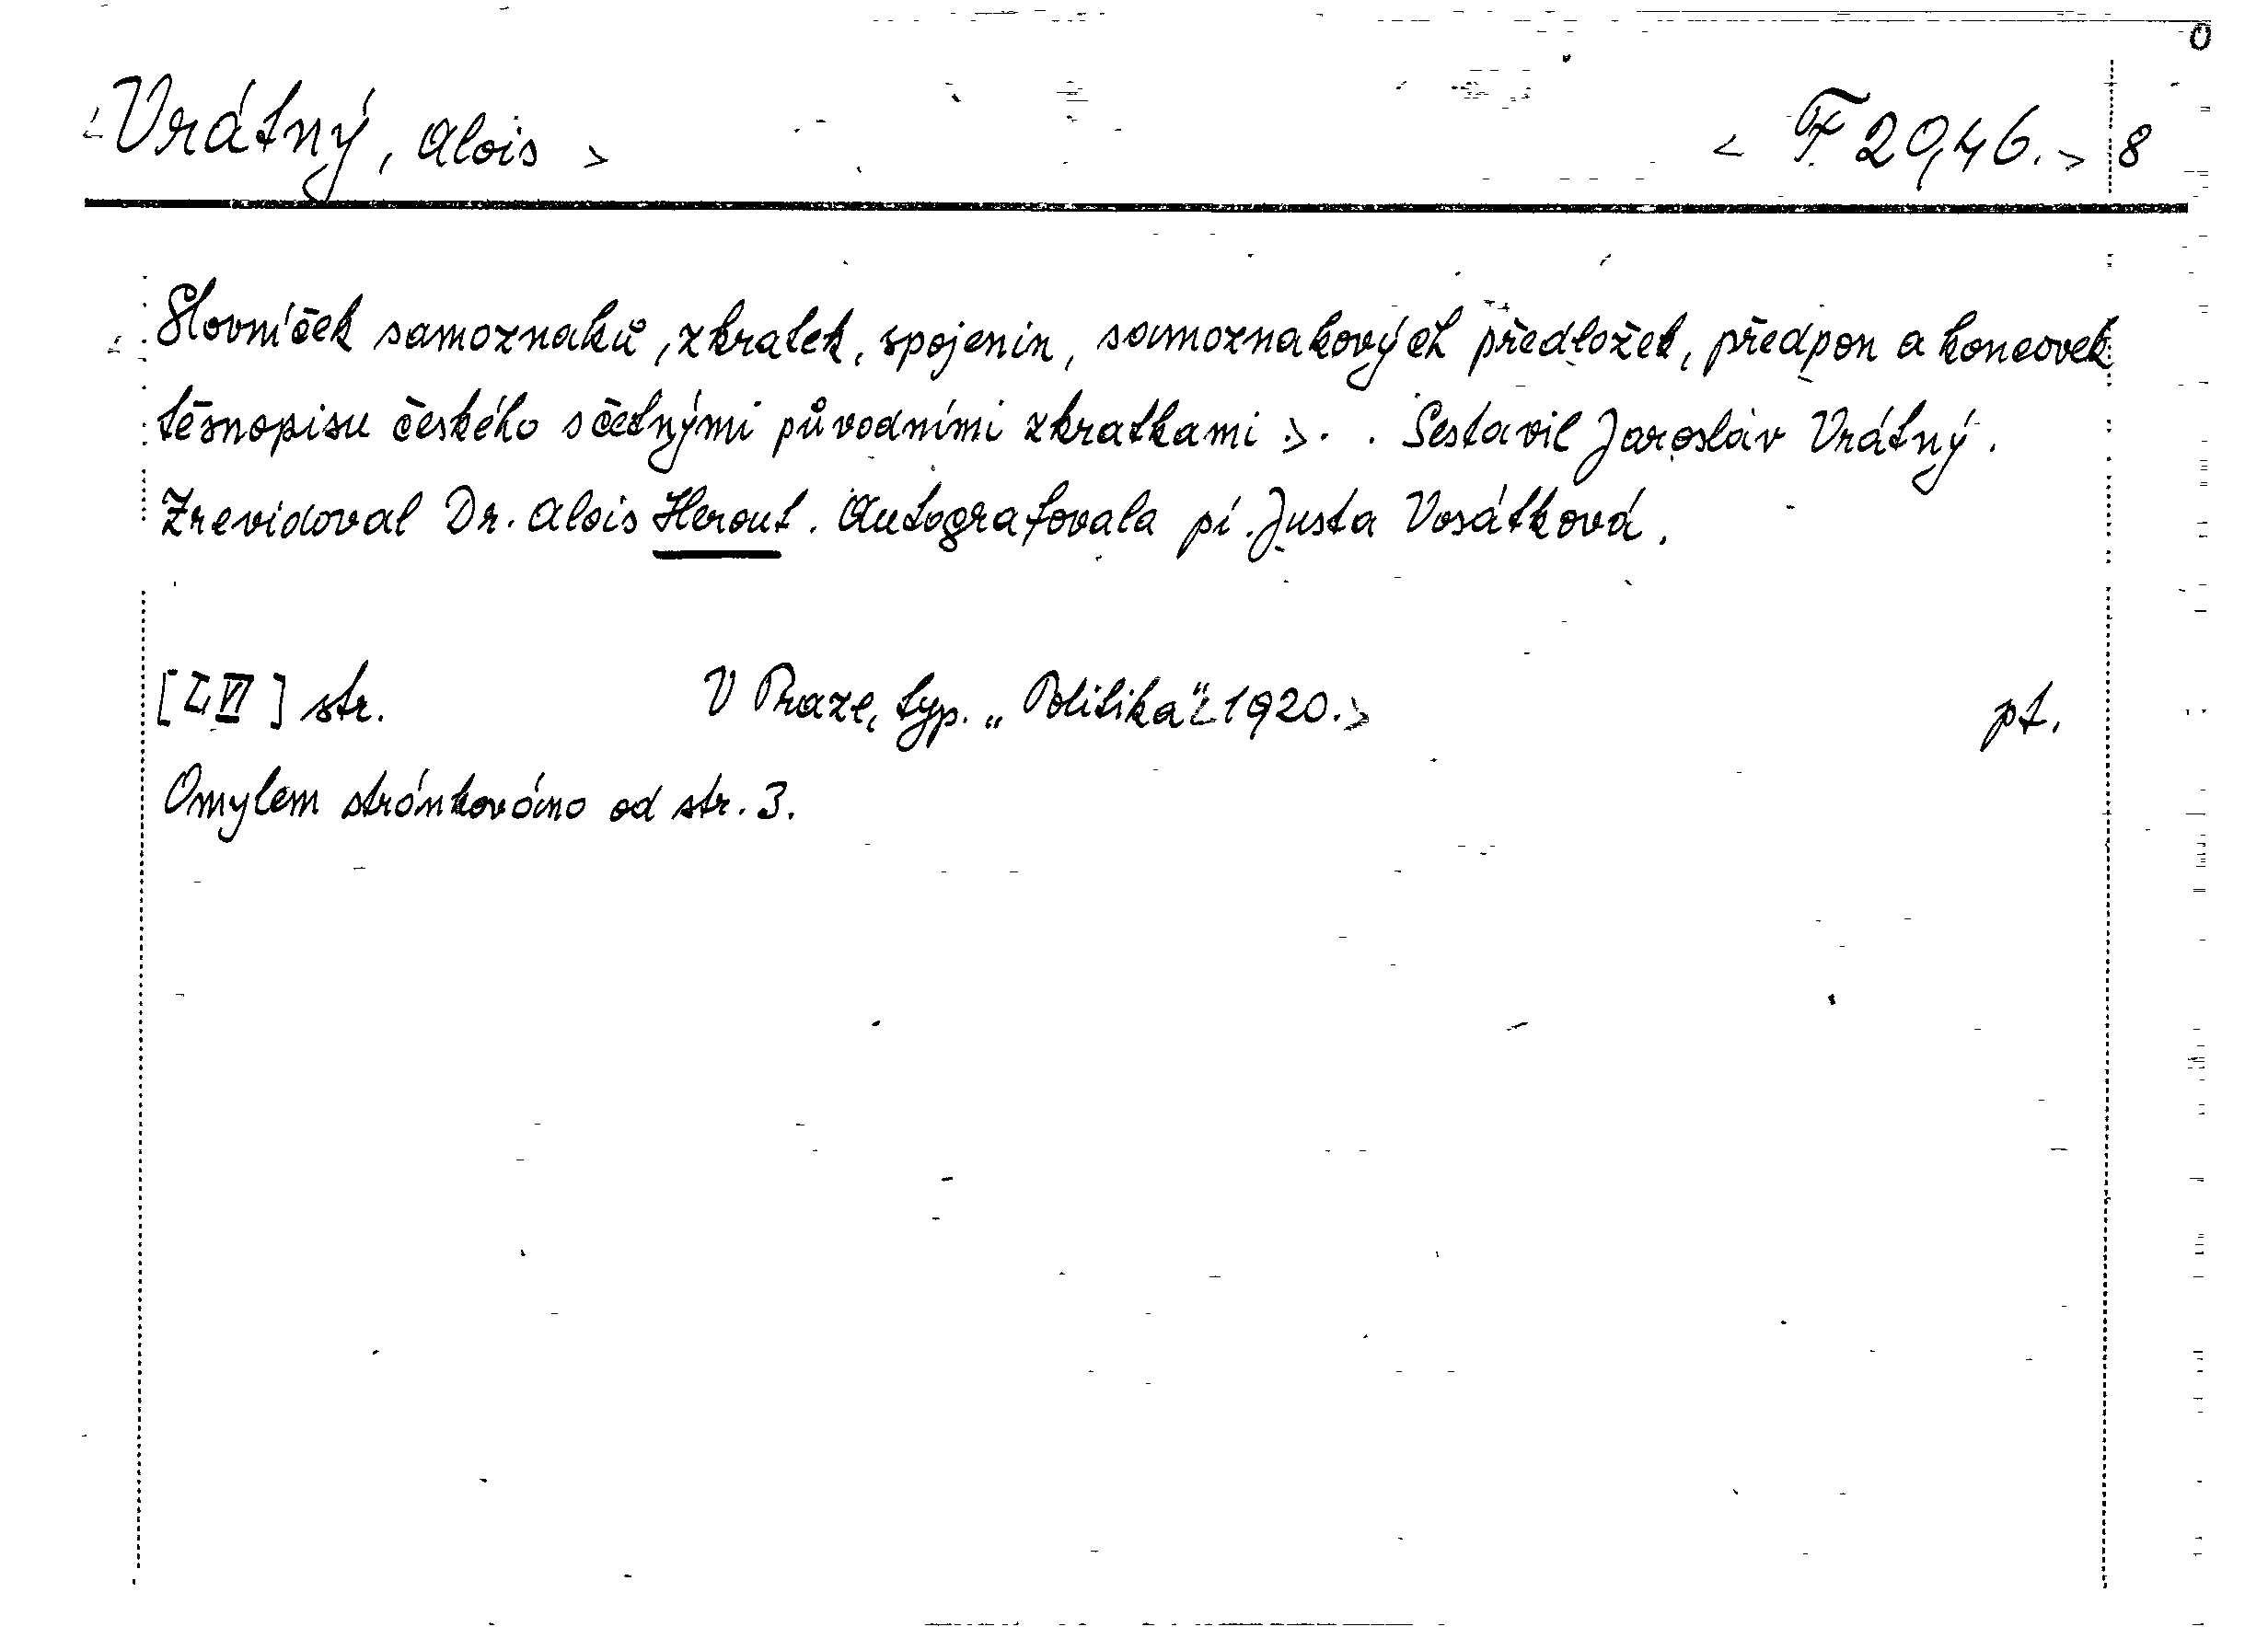 <Vrátný, Alois> <F 29,46.> 8
<Slovníček samoznaků, zkratek, spojenin, samoznakových předložek, předpon a koncovek
těsnopisu českého s četnými původními zkratkami>. . Sestavil Jaroslav Vrátný.
Zrevidoval Dr. Alois Herout. Autografovala pí. Justa Vosátková.
[LVI] str. V Praze, typ. „Politika“ <1920.> pt.
Omylem stránkováno od str. 3.